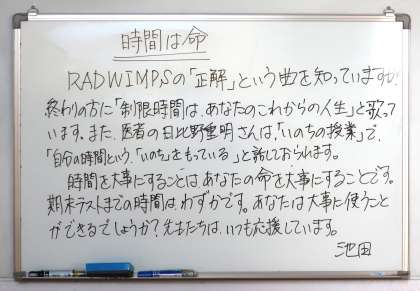 時間は命
RADWIMPSの「正解」という曲を知っていますか?
終わりの方に「制限時間は、あなたのこれからの人生」と歌って
います。また、医者の日比野重明さんは「いのちの授業」で、
「自分の時間という、「いのち」をもっている」と話しておられます。
時間を大事にすることはあなたの命を大事にすることです。
期末テストまでの時間はわずかです。あなたは大事に使うこと
ができるでしょうか?先生たちは、いつも応援しています。
池田